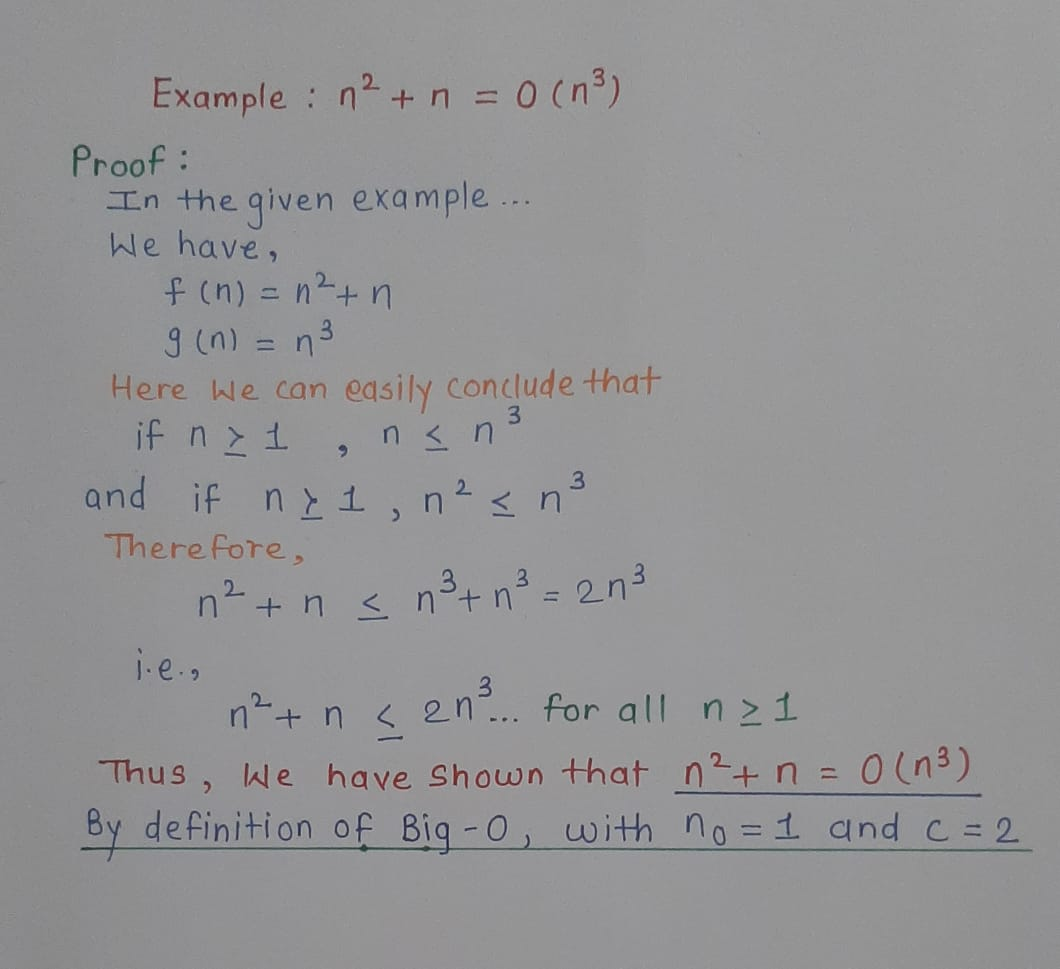 Example : n² + n = O (n³)
Proof :
In the given example ...
We have,
f (n) = n² + n
g (n) = n³
Here We can easily conclude that
if n ≥ 1 , n ≤ n³
and if n ≥ 1 , n² ≤ n³
Therefore,
n² + n ≤ n³ + n³ = 2n³
i.e.,
n² + n ≤ 2n³... for all n ≥ 1
Thus, We have Shown that n² + n = O (n³)
By definition of Big-O, with n₀ = 1 and c = 2